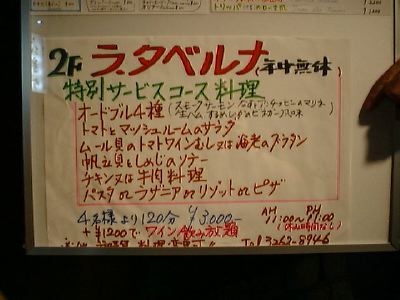 2F ラ・タベルナ (年中無休)
特別サービスコース料理
オードブル4種 (スモークサーモン
生ハム
トマトとマッシュルームのサラダ
ムール貝のトマトワインむし又は海老のグラタン
帆立貝としめじのソテー
チキン又は牛肉料理
パスタ or ラザニア or リゾット or ピザ
4名様より120分 ¥3000-
+¥1200で ワイン飲み放題
AM 11:00~PM 11:00
(休み時間なし)
Tel 3262-8946